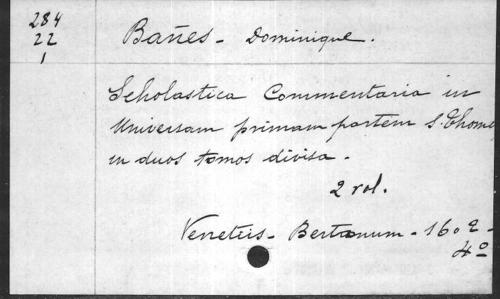 284
22
1
Bañes - Dominique.
Scholastica Commentaria in
Universam primam partem S. Thome
in duos tomos divisa.
2 vol.
Venetiis - Bertanum - 1602 -
4º